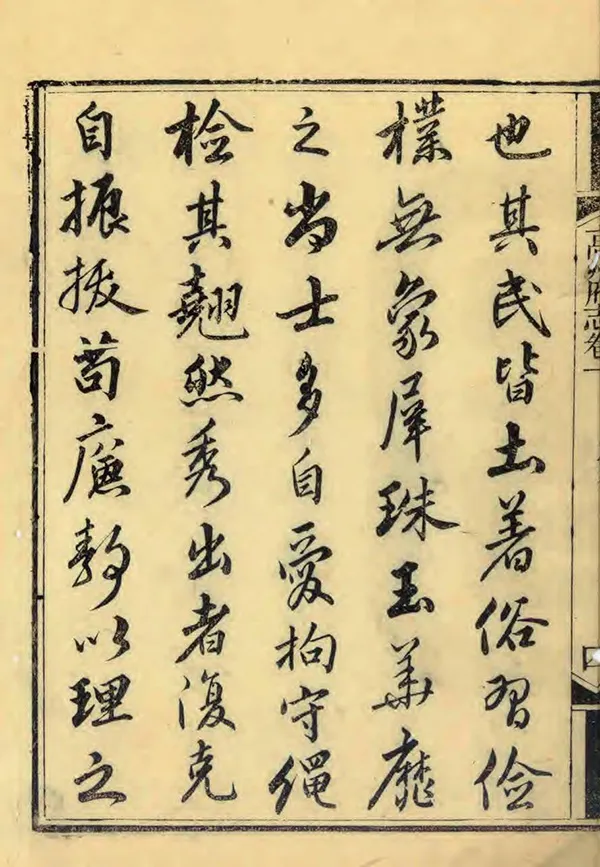 高州府志卷一
也其民皆土著俗習儉
樸無象犀珠玉華靡
之尚士多自愛拘守繩
檢其翹然秀出者復克
自振拔苟廉静以理之